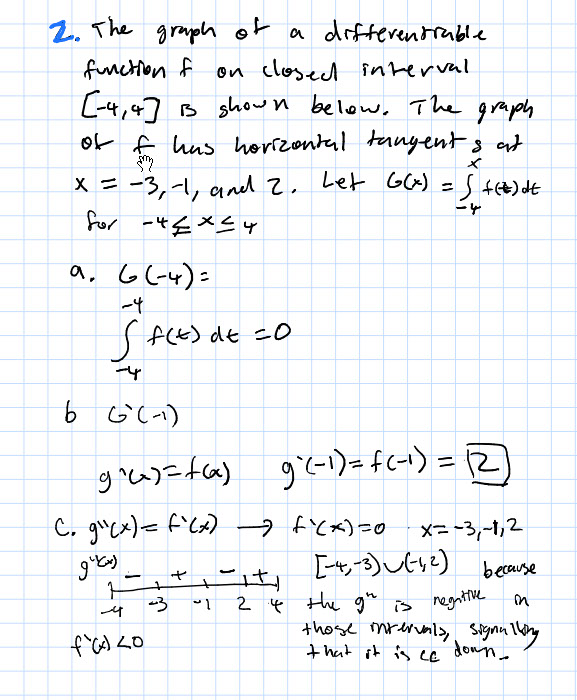 2. The graph of a differentiable
function f on closed interval
[-4,4] is shown below. The graph
of f has horizontal tangents at
x = -3, -1, and 2. Let G(x) = ∫_{-4}^{x} f(t) dt
for -4 ≤ x ≤ 4
a. G(-4) =
∫_{-4}^{-4} f(t) dt = 0
b G'(-1)
g'(x) = f(x) g'(-1) = f(-1) = 2
C. g''(x) = f'(x) → f'(x) = 0 x = -3, -1, 2
g''(x) - + - +
-4 -3 -1 2 4
f'(x) < 0
[-4,-3) ∪ (-1,2) because
the g'' is negative in
those intervals, signalling
that it is cc down.